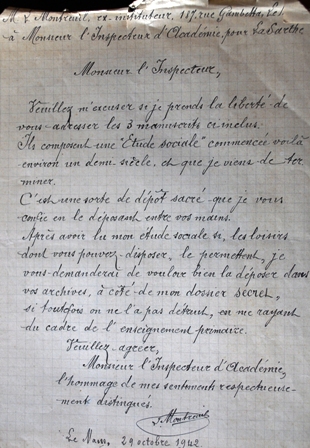 M L Montreuil, ex-instituteur, 117, rue Gambetta,
à Monsieur l'Inspecteur d'Académie, pour La Sarthe
Monsieur l'Inspecteur,
Veuillez m'excuser si je prends la liberté de
vous adresser les 3 manuscrits ci-inclus.
Ils composent une "Etude sociale" commencée voilà
environ un demi-siècle, et que je viens de ter
miner.
C'est une sorte de dépôt sacré que je vous
confie en le déposant entre vos mains.
Après avoir lu mon étude sociale si, les loisirs
dont vous pouvez disposer, le permettent, je
vous demanderai de vouloir bien la déposer dans
vos archives, à côté de mon dossier secret,
si toutefois on ne l'a pas détruit, en me rayant
du cadre de l'enseignement primaire.
Veuillez agréer,
Monsieur l'Inspecteur d'Académie,
l'hommage de mes sentiments respectueuse-
ment distingués.
Montreuil
Le Mans, 29 octobre 1942